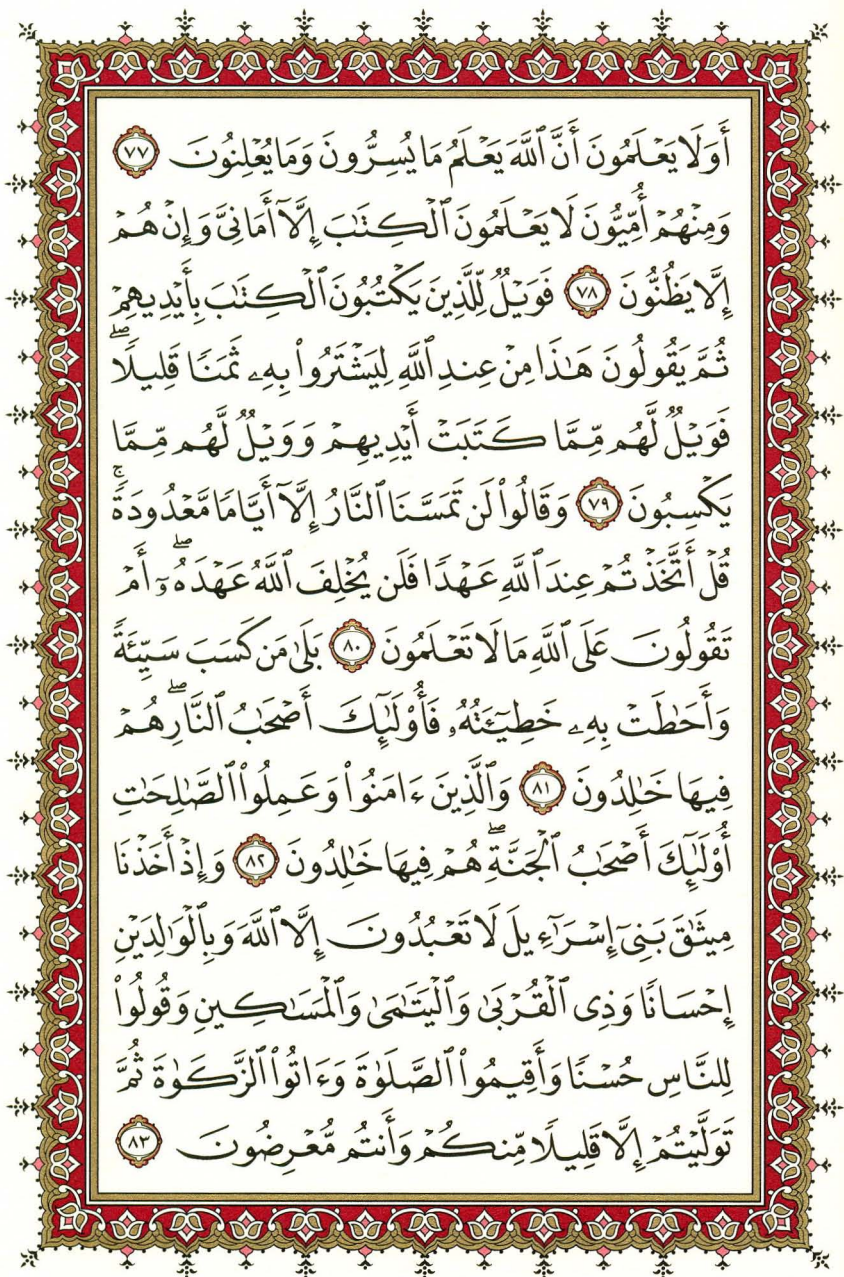 أَوَلَا يَعْلَمُونَ أَنَّ ٱللَّهَ يَعْلَمُ مَا يُسِرُّونَ وَمَا يُعْلِنُونَ ٧٧
وَمِنْهُمْ أُمِّيُّونَ لَا يَعْلَمُونَ ٱلْكِتَٰبَ إِلَّآ أَمَانِىَّ وَإِنْ هُمْ
إِلَّا يَظُنُّونَ ٧٨ فَوَيْلٌ لِّلَّذِينَ يَكْتُبُونَ ٱلْكِتَٰبَ بِأَيْدِيهِمْ
ثُمَّ يَقُولُونَ هَٰذَا مِنْ عِندِ ٱللَّهِ لِيَشْتَرُوا۟ بِهِۦ ثَمَنًا قَلِيلًا ۖ
فَوَيْلٌ لَّهُم مِّمَّا كَتَبَتْ أَيْدِيهِمْ وَوَيْلٌ لَّهُم مِّمَّا
يَكْسِبُونَ ٧٩ وَقَالُوا۟ لَن تَمَسَّنَا ٱلنَّارُ إِلَّآ أَيَّامًا مَّعْدُودَةً ۚ
قُلْ أَتَّخَذْتُمْ عِندَ ٱللَّهِ عَهْدًا فَلَن يُخْلِفَ ٱللَّهُ عَهْدَهُۥٓ ۖ أَمْ
تَقُولُونَ عَلَى ٱللَّهِ مَا لَا تَعْلَمُونَ ٨٠ بَلَىٰ مَن كَسَبَ سَيِّئَةً
وَأَحَٰطَتْ بِهِۦ خَطِيٓـَٔتُهُۥ فَأُو۟لَٰٓئِكَ أَصْحَٰبُ ٱلنَّارِ ۖ هُمْ
فِيهَا خَٰلِدُونَ ٨١ وَٱلَّذِينَ ءَامَنُوا۟ وَعَمِلُوا۟ ٱلصَّٰلِحَٰتِ
أُو۟لَٰٓئِكَ أَصْحَٰبُ ٱلْجَنَّةِ ۖ هُمْ فِيهَا خَٰلِدُونَ ٨٢ وَإِذْ أَخَذْنَا
مِيثَٰقَ بَنِىٓ إِسْرَٰٓءِيلَ لَا تَعْبُدُونَ إِلَّا ٱللَّهَ وَبِٱلْوَٰلِدَيْنِ
إِحْسَانًا وَذِى ٱلْقُرْبَىٰ وَٱلْيَتَٰمَىٰ وَٱلْمَسَٰكِينِ وَقُولُوا۟
لِلنَّاسِ حُسْنًا وَأَقِيمُوا۟ ٱلصَّلَوٰةَ وَءَاتُوا۟ ٱلزَّكَوٰةَ ثُمَّ
تَوَلَّيْتُمْ إِلَّا قَلِيلًا مِّنكُمْ وَأَنتُم مُّعْرِضُونَ ٨٣